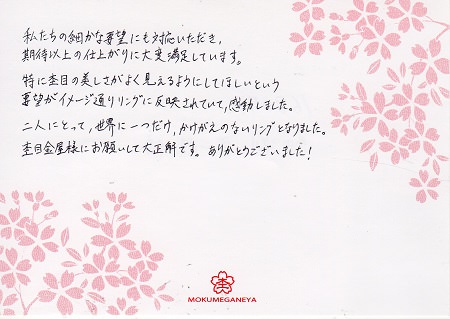 私たちの細かな要望にも対応いただき、
期待以上の仕上がりに大変満足しています。
特に杢目の美しさがよく見えるようにしてほしいという
要望がイメージ通りリングに反映されていて、感動しました。
二人にとって、世界に一つだけ、かけがえのないリングとなりました。
杢目金屋様にお願いして大正解です。ありがとうございました！
杢
MOKUMEGANEYA